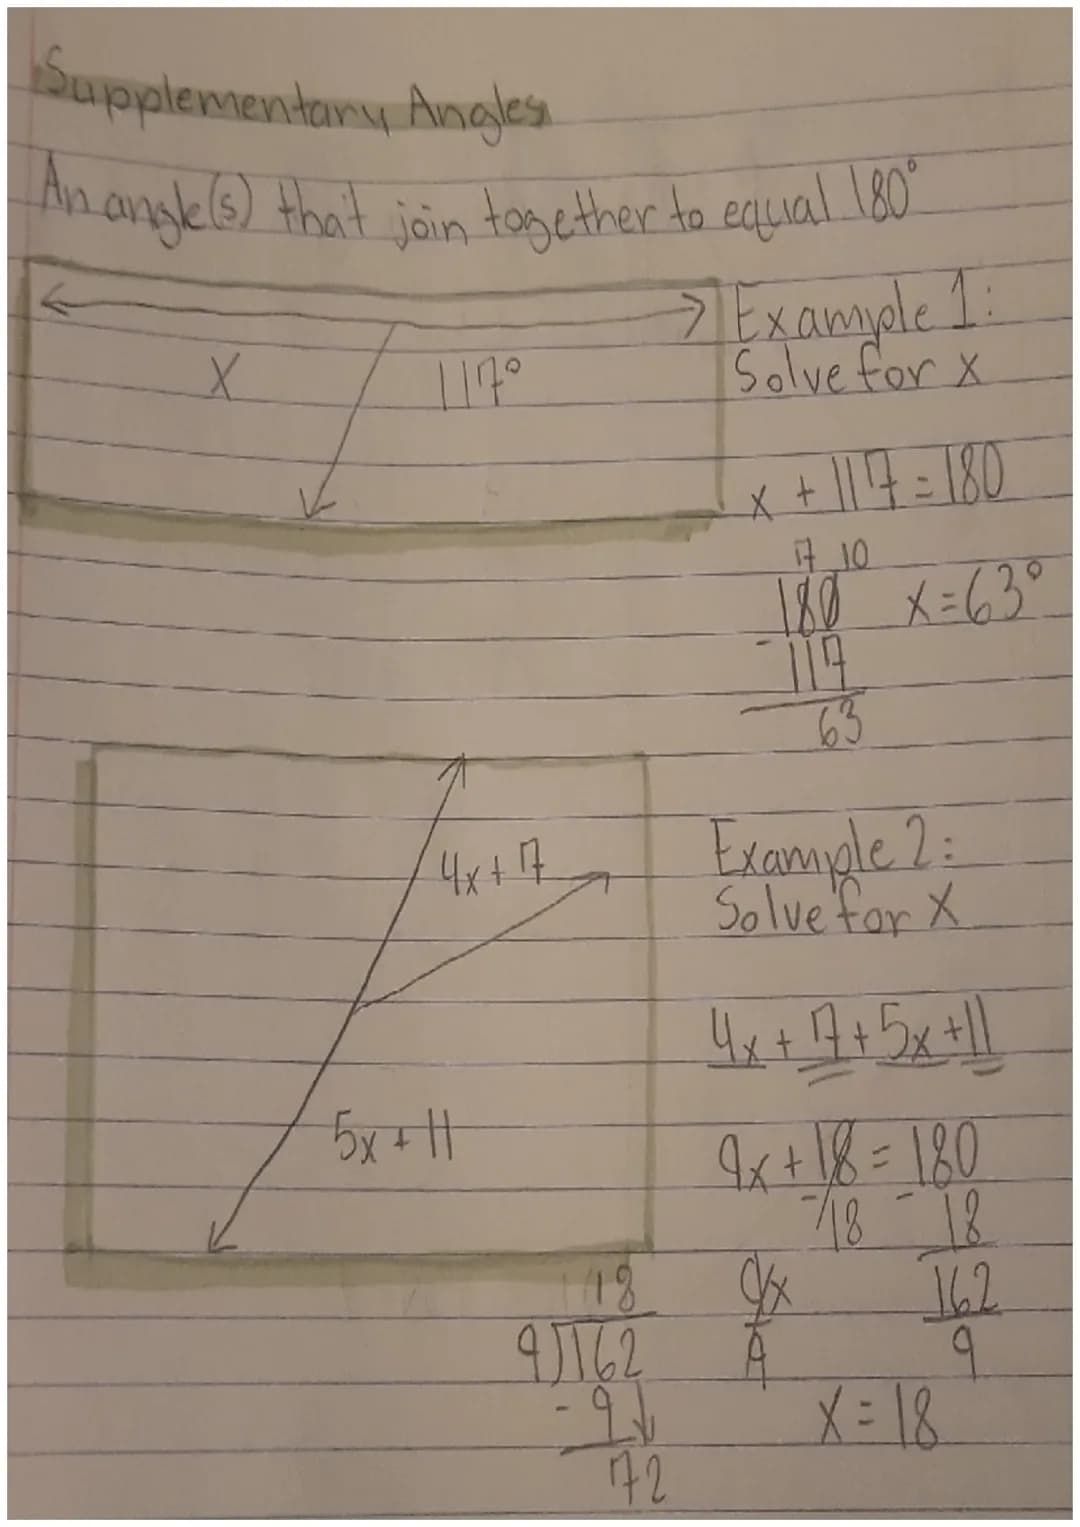 Supplementary Angles
An angle(s) that join together to equal 180°
X
117°
Example 1:
Solve for x
x + 117 = 180
7 10
180
x = 63°
- 117
63
4x + 7
5x + 11
Example 2:
Solve for X
4x + 7 + 5x + 11
9x + 18 = 180
- 18 - 18
9x 162
9 9
x = 18
18
9)162
- 9
72